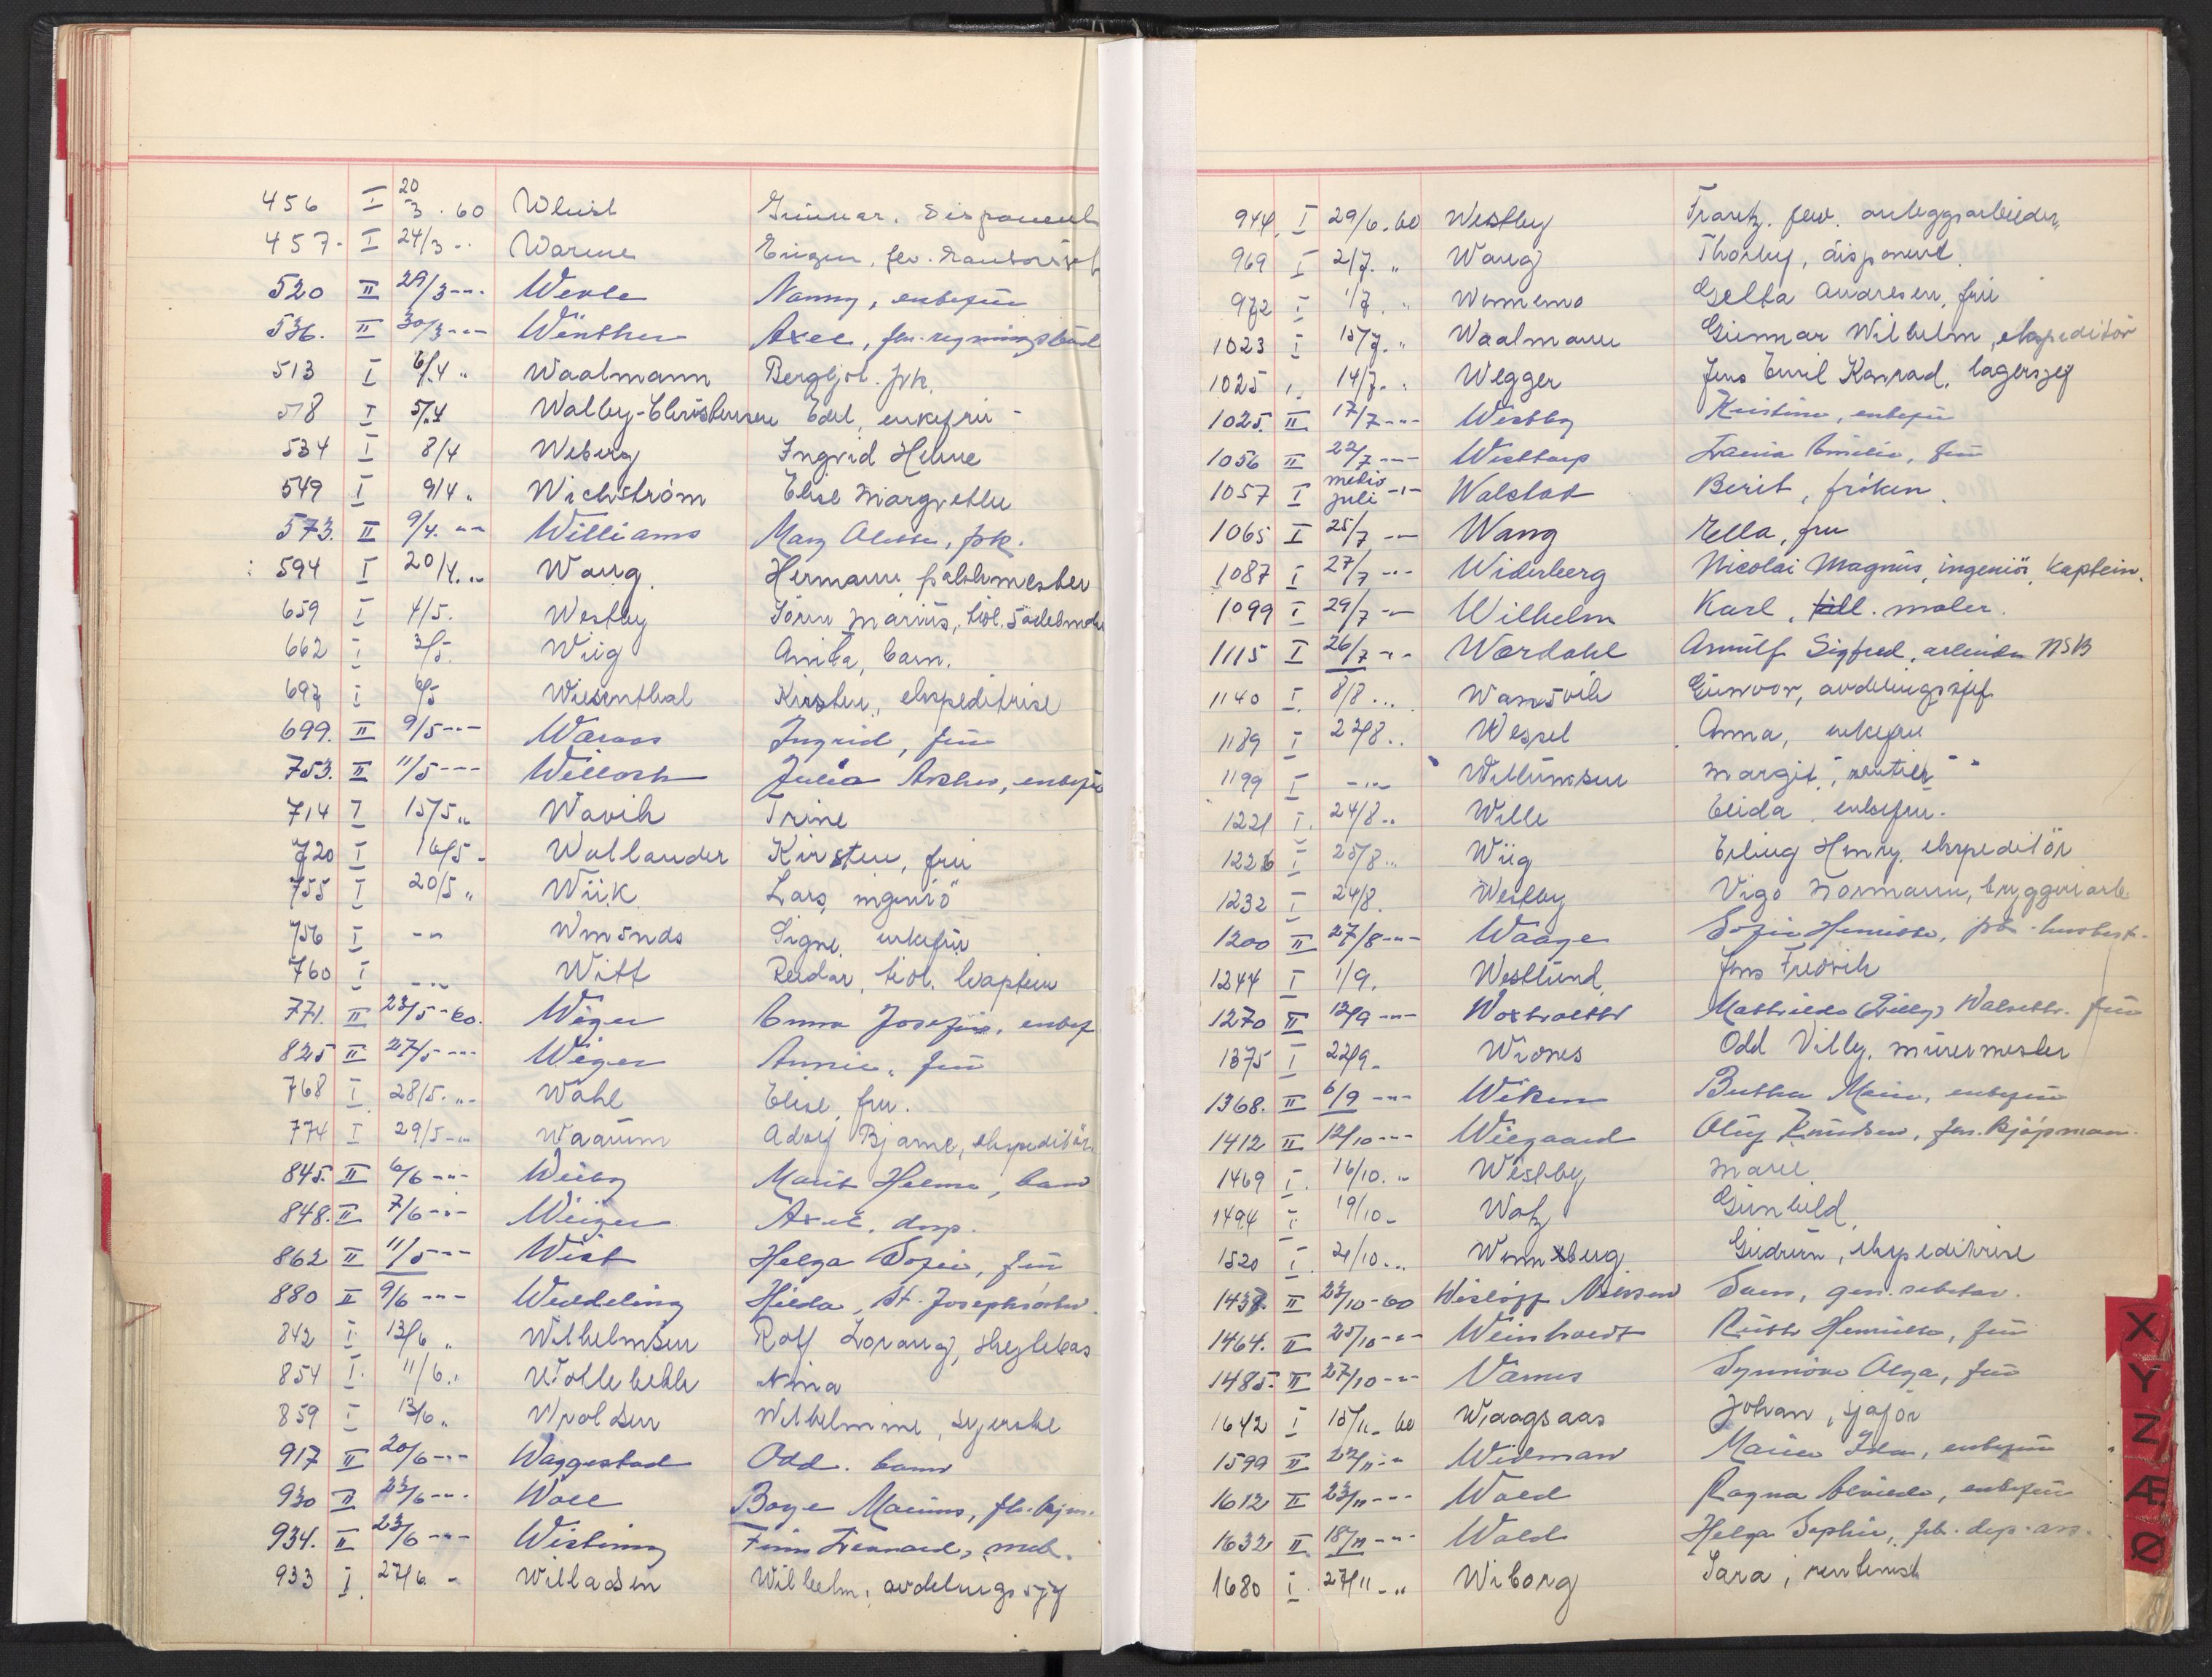 456 I 20/3.60 Wluist Gunnar. Disponent
457- I 24/3 -.. Warme Eugen, fev.
520 II 29/3 -..- Werle Nanny, enkefru
536. II 30/3 -..- Winther Axel, fhv. regningsbud
513 I 6/4 .. Waalmann Bergljot. frk.
518 I 5/4 Walby-Christensen Edel, enkefru -
534 I 8/4 Weberg Ingrid Helene
549 I 9/4 .. Wichström Else Margrethe
573. II 9/4. -..- Williams Mary Alette, frk.
594 I 20/4. .. Wang. Hermann
659 I 4/5. Westby Sören Marius, tidl. Sadelmaker
662 I 3/5. Wiig Anita, barn.
697 I 6/5 Wiesenthal Kirsten, ekspeditrise
699. II 9/5 -..- Waraas Ingrid, fru
753. II 11/5 -..- Willoch Julia Archer, enkefru
714 I 15/5 .. Wavik Trine
720 I 16/5 - Wallander Kirsten, fru
755 I 20/5 .. Wiik Lars, ingeniö
756 I -..- Signe, enkefru
760 I -..- Witt Reidar, tidl. kaptein
771. II 23/5 - 60. Wiger Anna Josefine, enkef
825 II 27/5 -..- Wiger Annie, fru
768 I 28/5. -..- Wahl Elise, fru.
774 I 29/5 -..- Waarum Adolf Bjarne, ekspeditör.
845. II 6/6 -..- Wiiby Marit Helene, barn
848. II 7/6 -..- Weiger Axel, disp.
862 II 11/5 -..- Wist Helga Sofie, fru
880 II 9/6 -..- Weddeling Hilda, St. Josephsöster.
842 I 13/6 .. Wilhelmsen Rolf Lorang,
854 I. 11/6 .. Wollebekk Nina
859 I 13/6 .. Wroldsen Wilhelmine, syerske
917 II 20/6 -..- Waggestad Odd. barn
930 II 23/6 -..- Wall Boye Marius, fhv. kjm.
934. II 23/6 -..- Wisting Finn Lennard, mek.
933 I. 27/6. - Willadsen Wilhelm, avdelingssjef
944. I 29/6.60 Westby Frantz, fev. anleggsarbeider
969 I 2/7. .. Wang Thorby, disponent.
972 I 1/7 .. Wennemo Gelta Andresen, fru
1023 I 15/7. .. Waalmann Gunnar Wilhelm, ekspeditör
1025 I. 14/7. .. Wegger Jens Emil Konrad, lagersjef
1025. II 17/7 -..- Westby Kristine, enkefru
1056 II 22/7 -..- Westtorp Laura Emilie, fru
1057 I medio juli -..- Walstad Berit, fröken.
1065 I 25/7 -..- Wang Ella, fru
1087 I 27/7 -..- Widerberg Nicolai Magnus, ingeniör, kaptein.
1099 I 29/7 -..- Wilhelm Karl, maler.
1115 I 26/7 -..- Wardahl Arnulf Sigfred, arbeider NSB
1140 I. 8/8 ... Wansvik Gunvor, avdelingssjef
1189 I 22/8 .. Wessel Anna, enkefru
1199 I -..- Willumsen Margit, rentier
1221 I. 24/8 .. Wille Elida, enkefru.
1226 I 25/8 ... Wiig Erling Henry, ekspeditör
1232 I 24/8. Westby Vigo Normann, bryggeriarb.
1200 II 27/8 -..- Waage Sofie Henriette, frk. husbest.
1244 I 1/9. Westlund Jens Fredrik
1270 II 12/9 -..- Woxholtt Mathilde (Lilly) fru
1375 I 22/9. Wiones Odd Villy, murermester
1368. II 6/9 -..- Wiken Berthe Marie, enkefru
1412 II 12/10 -..- Wiegaard Oluf Knudsen, fhv. kjöpmann.
1469 I. 16/10. .. Westby Marie.
1494 I. 19/10 - Watz Gunhild.
1520 I. 21/10 ... Wennberg Gudrun, ekspeditrise
1437. II 23/10 - 60 Wislöff Nilssen gen. sekretær.
1464. II 25/10 -..- Weinholdt Ruth Henriette, fru
1485. II 27/10 -..- Warnes Synnöve Olga, fru
1642 I 15/11. 60 Waagsaas Johan, sjåför
1599 II 22/11 -..- Widman Marie Ida, enkefru
1612 II 23/11 -..- Wold Ragna Alvilde, enkefru
1632 II 18/11 -..- Wold Helga Sophie, frk. dep. ass.
1680 I. 27/11 - .. Wiborg Sara, rentenist
X
Y
Z
Æ
Ø